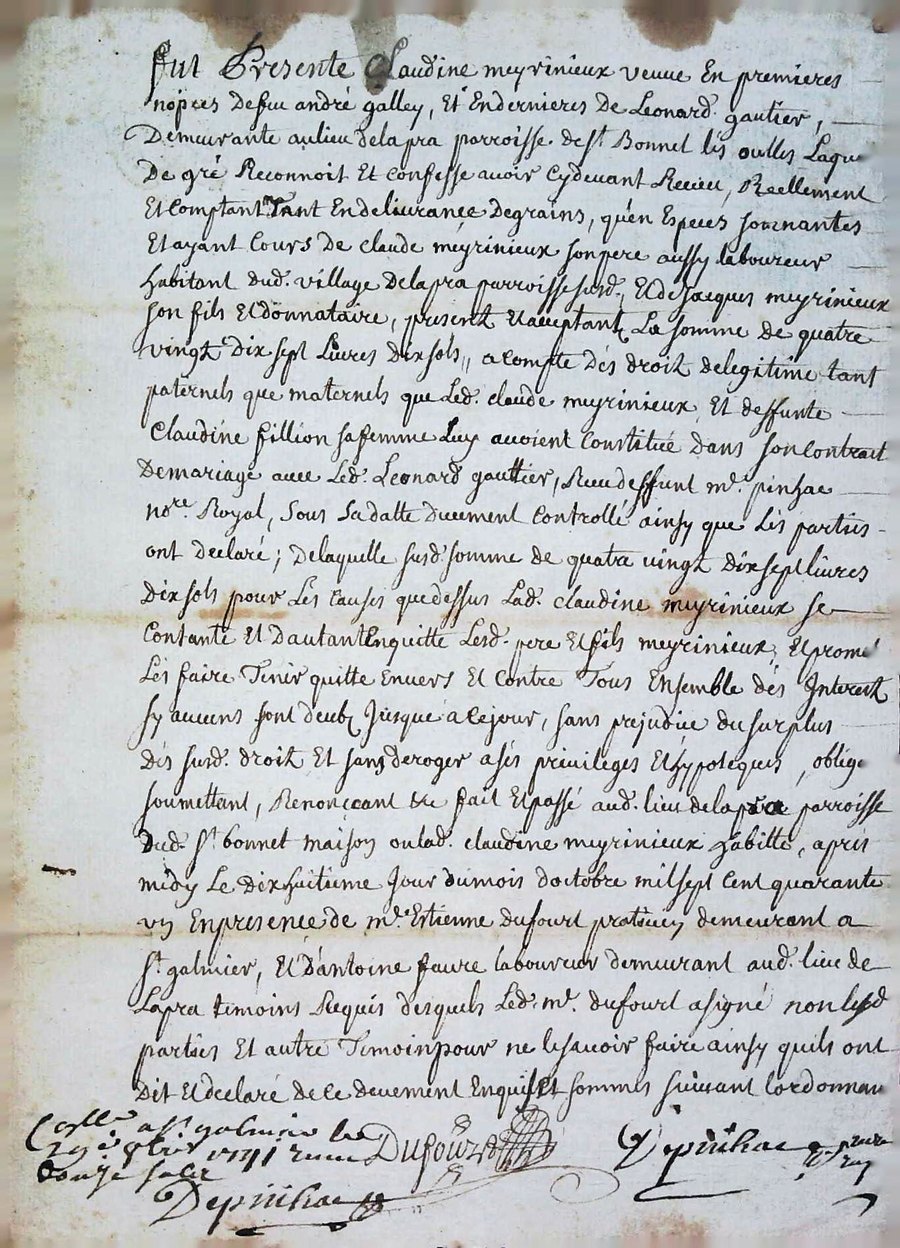 fut Presente Claudine meyrinieux veuve En premieres
nopces defeu andré galley, Et Endernieres De Leonard gautier,
Demeurante aulieu delapra parroisse de st. Bonnet les oulles Laqu
De gré Reconnoit Et Confesse avoir Cydevant Receu, Reellement
Et Comptant Tant Endelivrance Degrains, qu'en Especes sonnantes
Et ayant Cours De claude meyrinieux sonpere aussy laboureur
habitant dud. village Delapra parroisse susd. Et de Jacques meyrinieux
son fils Et Donnataire, present Et acceptant La somme de quatre
vingt Dix sept Livres Dix sols, acompte dés droit delegitime tant
paternels que maternels que Led. claude meyrinieux Et deffunte
Claudine fillion safemme Luy avoient Constitué dans son Contrait
Demariage avec Led. Leonard gauttier, Receu deffunt me. pinhac
nore. Royal, sous sadatte Duement Controllé ainsy que Lés parties
ont declaré; Delaquelle susd. somme de quatre vingt dix sept livres
Dix sols pour Lés Causes que dessus Lad. claudine meyrinieux se
Contante Et Dautant Enquitte Lesd. pere Et fils meyrinieux, Et promé
Lés faire Tenir quitte Envers Et Contre Tous Ensemble dés Interest
sy aucuns sont deubt Jusque a Cejour, sans prejudice du surplus
dés susd. droit Et sans deroger a sés privileges Et hypoteques, oblige
soumettant, Renonçcant &c fait Et passé aud. lieu delapra parroisse
Dud. st. bonnet maison oulad. claudine meyrinieux habitte, aprés
midy Le dixhuitieme Jour dumois doctobre milsept Cent quarante
un Enpresence de me. Estienne dufourt praticien demeurant a
st. galmier, Et D'antoine faure laboureur demeurant aud. lieu de
Lapra temoins Requis desquels Led. me. dufourt asigné non lesd
parties Et autre Temoin pour ne lesavoir faire ainsy quils ont
Dit Et declaré de ce devement Enquis Et sommés suivant Lordonnan
Collé a st galmier le
29 8bre 1741 receu
Douze sols
Dufourt
Depinhac
Depinhac